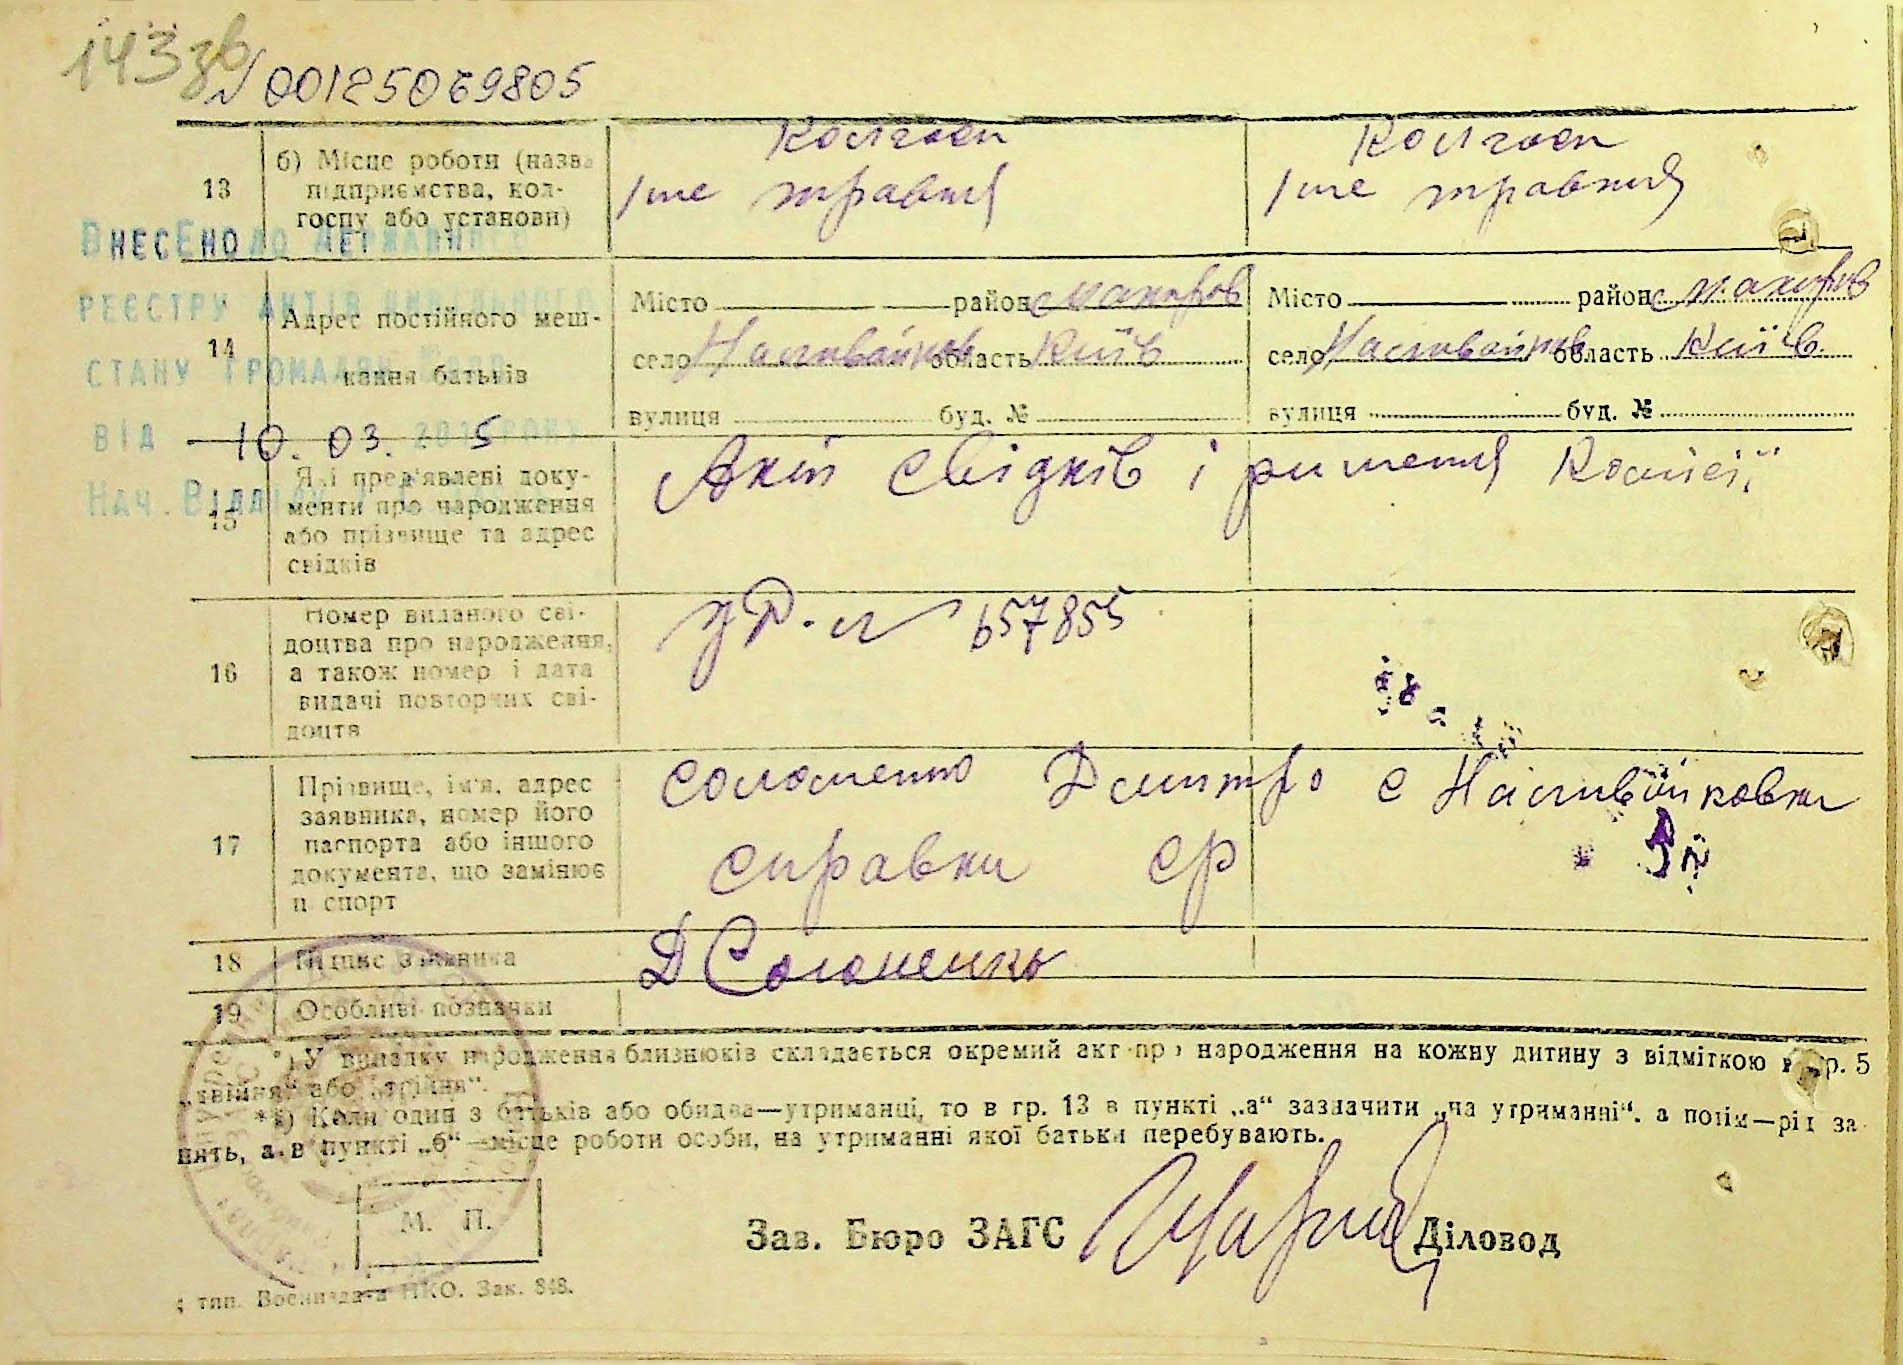 143 зв
N 00125069805
13
б) Місце роботи (назва
підприємства, кол-
госпу або установи)
Колгосп
1ше травня
Колгосп
1ше травня
Внесено до Державного
реєстру актів цивільного
стану громадян
від 10. 03. 2015 року
Нач. Відділу
14
Адрес постійного меш-
кання батьків
Місто район Макаров
село область Київ
вулиця буд. №
Місто район Макаров
село область Київ
вулиця буд. №
15
Які пред'явлені доку-
менти про народження
або прізвище та адрес
свідків
Акт свідків і ришення Комісії
16
Номер виданого сві-
доцтва про народження,
а також номер і дата
видачі повторних сві-
доцтв
657855
17
Прізвище, ім'я, адрес
заявника, номер його
паспорта або іншого
документа, що замінює
п спорт
Соломенко Дмитро с Наливайковки
справки ср
18
Підпис заявника
Д Соломенко
19
Особливі позначки
*) У випадку народження близнюків складається окремий акт про народження на кожну дитину з відміткою в гр. 5
„двійня“ або „трійня“.
**) Коли один з батьків або обидва—утриманці, то в гр. 13 в пункті „а“ зазначити „на утриманні“, а потім—рід за
нять, а в пункті „б“—місце роботи особи, на утриманні якої батьки перебувають.
М. П.
Зав. Бюро ЗАГС
Діловод
тип. Воениздата НКО. Зак. 848.